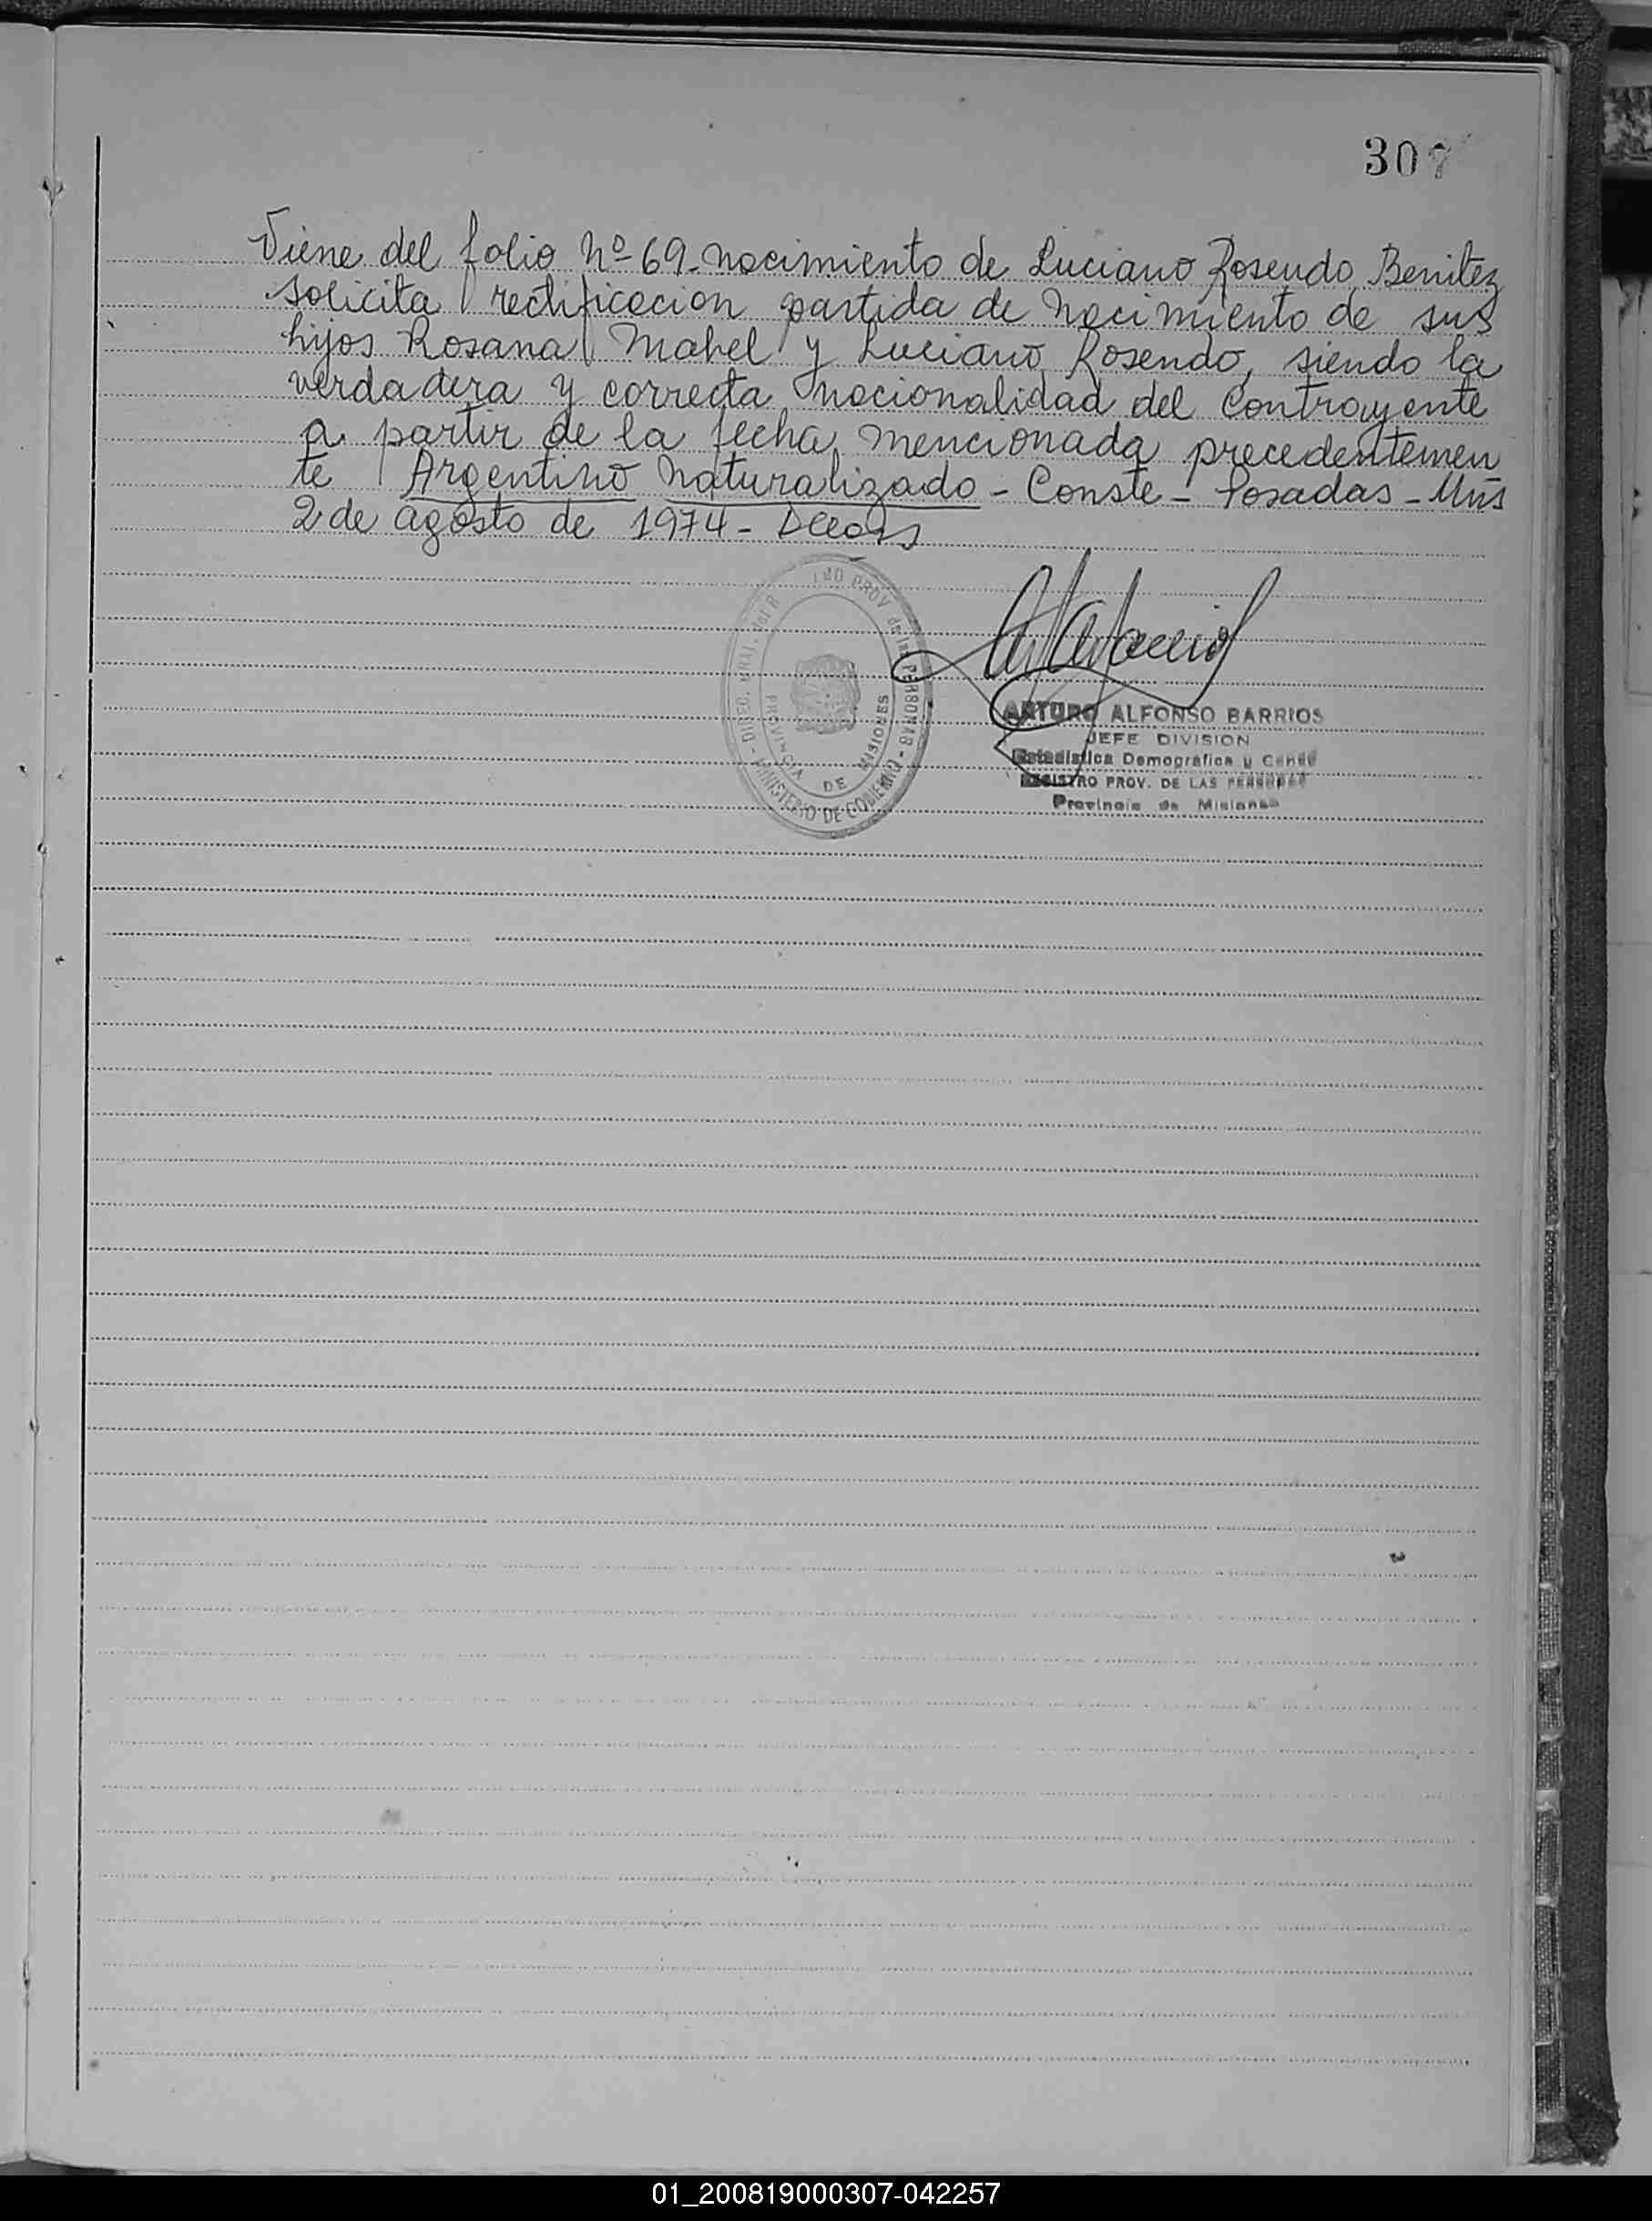 307
Viene del folio Nº 69. nacimiento de Luciano Rosendo Benitez
solicita rectificacion partida de nacimiento de sus
hijos Rosana Mabel y Luciano Rosendo, siendo la
verdadera y correcta nacionalidad del Contrayente
a partir de la fecha mencionada precedentemen
te Argentino Naturalizado - Conste - Posadas - Mns
2 de agosto de 1974 -
PROV de las PERSONAS
MINISTERIO DE GOBIERNO
PROVINCIA DE MISIONES
ARTURO ALFONSO BARRIOS
JEFE DIVISION
Estadistica Demografica y Censo
REGISTRO PROV. DE LAS PERSONAS
Provincia de Misiones
01_200819000307-042257